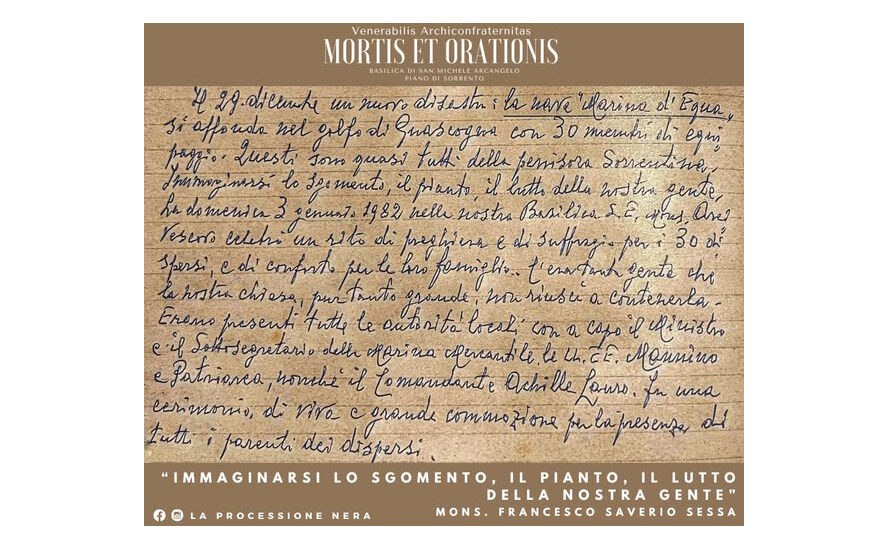 Venerabilis Archiconfraternitas
MORTIS ET ORATIONIS
BASILICA DI SAN MICHELE ARCANGELO
PIANO DI SORRENTO
Il 29 dicembre un nuovo disastro: la nave "Marina d'Equa"
si affonda nel golfo di Guascogna con 30 membri di equi
paggio. Questi sono quasi tutti della penisola Sorrentina.
Immaginarsi lo sgomento, il pianto, il lutto della nostra gente.
La domenica 3 gennaio 1982 nella nostra Basilica S.E. Mons. Arci
vescovo celebrò un rito di preghiera e di suffragio per i 30 di
spersi, e di conforto per le loro famiglie. C'era tanta gente che
la nostra chiesa, pur tanto grande, non riuscì a contenerla.
Erano presenti tutte le autorità locali con a capo il Ministro
e il Sottosegretario della Marina Mercantile le LL. EE. Mannino
e Patriarca, nonché il Comandante Achille Lauro. Fu una
cerimonia di viva e grande commozione per la presenza di
tutti i parenti dei dispersi.
"IMMAGINARSI LO SGOMENTO, IL PIANTO, IL LUTTO
DELLA NOSTRA GENTE"
MONS. FRANCESCO SAVERIO SESSA
LA PROCESSIONE NERA